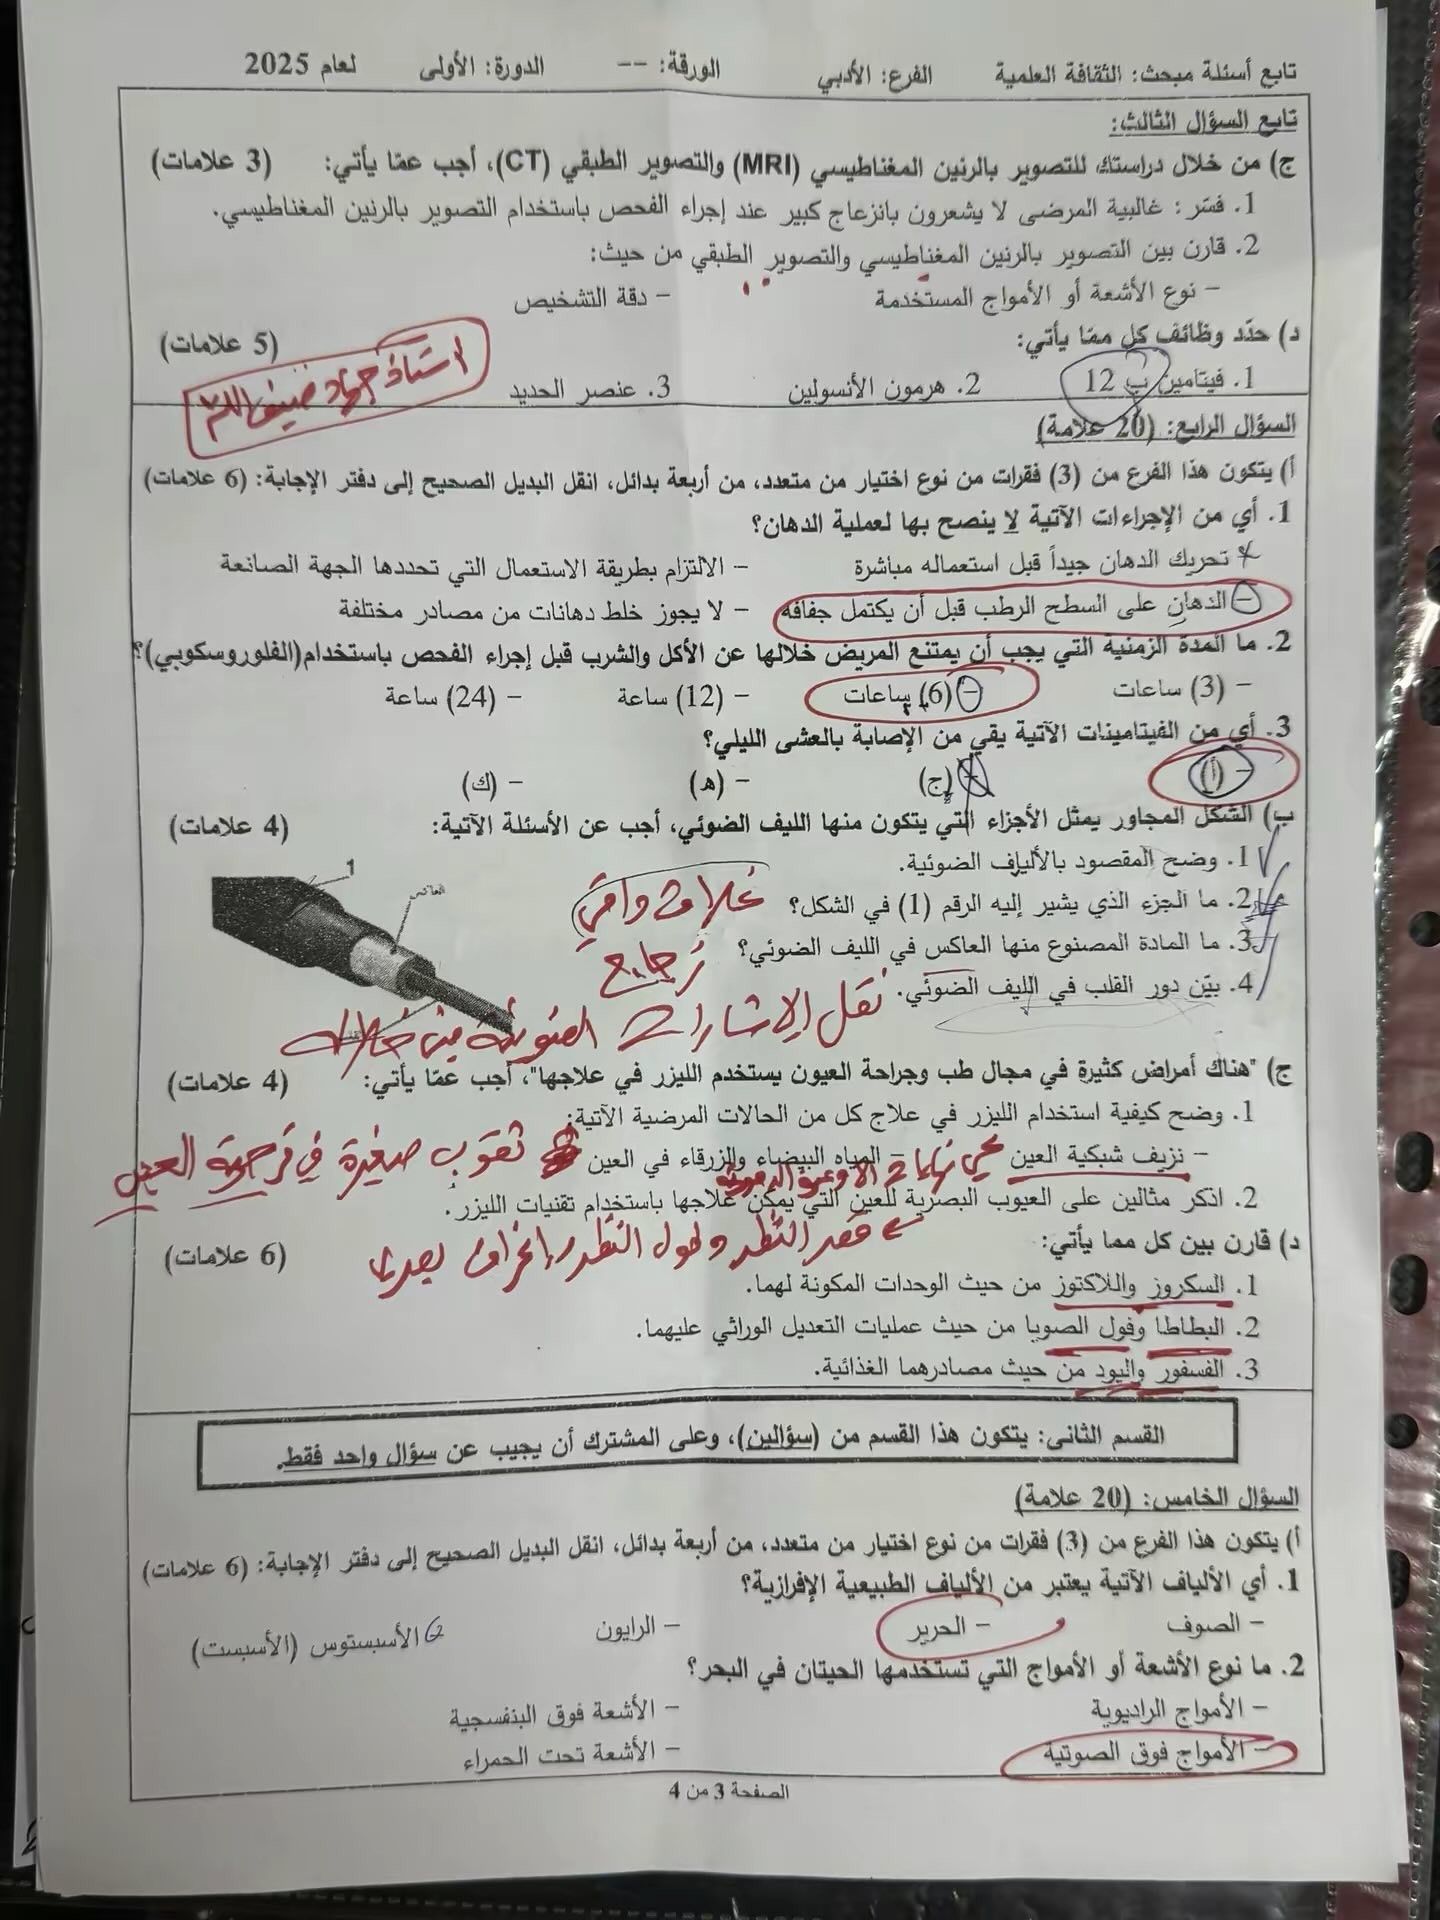 تابع أسئلة مبحث: الثقافة العلمية الفرع: الأدبي الورقة: -- الدورة: الأولى لعام 2025
تابع السؤال الثالث:
ج) من خلال دراستك للتصوير بالرنين المغناطيسي (MRI) والتصوير الطبقي (CT)، أجب عمّا يأتي: (3 علامات)
1. فسّر: غالبية المرضى لا يشعرون بانزعاج كبير عند إجراء الفحص باستخدام التصوير بالرنين المغناطيسي.
2. قارن بين التصوير بالرنين المغناطيسي والتصوير الطبقي من حيث:
- نوع الأشعة أو الأمواج المستخدمة - دقة التشخيص
د) حدّد وظائف كل ممّا يأتي: (5 علامات)
1. فيتامين ب 12 2. هرمون الأنسولين 3. عنصر الحديد
استاذ جهاد ضيف الله
السؤال الرابع: (20 علامة)
أ) يتكون هذا الفرع من (3) فقرات من نوع اختيار من متعدد، من أربعة بدائل، انقل البديل الصحيح إلى دفتر الإجابة: (6 علامات)
1. أي من الإجراءات الآتية لا ينصح بها لعملية الدهان؟
تحريك الدهان جيداً قبل استعماله مباشرة - الالتزام بطريقة الاستعمال التي تحددها الجهة الصانعة
- الدهان على السطح الرطب قبل أن يكتمل جفافه - لا يجوز خلط دهانات من مصادر مختلفة
2. ما المدة الزمنية التي يجب أن يمتنع المريض خلالها عن الأكل والشرب قبل إجراء الفحص باستخدام(الفلوروسكوبي)؟
- (3) ساعات - (6) ساعات - (12) ساعة - (24) ساعة
3. أي من الفيتامينات الآتية يقي من الإصابة بالعشى الليلي؟
- (أ) - (ج) - (ه) - (ك)
ب) الشكل المجاور يمثل الأجزاء التي يتكون منها الليف الضوئي، أجب عن الأسئلة الآتية: (4 علامات)
1. وضح المقصود بالألياف الضوئية.
1 العاكس
2. ما الجزء الذي يشير إليه الرقم (1) في الشكل؟ غلاف واقي
3. ما المادة المصنوع منها العاكس في الليف الضوئي؟ زجاج
4. بيّن دور القلب في الليف الضوئي. نقل الإشارات الضوئية من خلاله
ج) "هناك أمراض كثيرة في مجال طب وجراحة العيون يستخدم الليزر في علاجها"، أجب عمّا يأتي: (4 علامات)
1. وضح كيفية استخدام الليزر في علاج كل من الحالات المرضية الآتية:
- نزيف شبكية العين نهايات الاوعية الدموية - المياه البيضاء والزرقاء في العين ثقوب صغيرة في قرحية العين
2. اذكر مثالين على العيوب البصرية للعين التي يمكن علاجها باستخدام تقنيات الليزر.
قصر النظر وطول النظر
د) قارن بين كل مما يأتي: (6 علامات)
1. السكروز واللاكتوز من حيث الوحدات المكونة لهما.
2. البطاطا وفول الصويا من حيث عمليات التعديل الوراثي عليهما.
3. الفسفور واليود من حيث مصادرهما الغذائية.
القسم الثاني: يتكون هذا القسم من (سؤالين)، وعلى المشترك أن يجيب عن سؤال واحد فقط.
السؤال الخامس: (20 علامة)
أ) يتكون هذا الفرع من (3) فقرات من نوع اختيار من متعدد، من أربعة بدائل، انقل البديل الصحيح إلى دفتر الإجابة: (6 علامات)
1. أي الألياف الآتية يعتبر من الألياف الطبيعية الإفرازية؟
- الصوف - الحرير - الرايون الأسبستوس (الأسبست)
2. ما نوع الأشعة أو الأمواج التي تستخدمها الحيتان في البحر؟
- الأمواج الراديوية - الأشعة فوق البنفسجية
- الأمواج فوق الصوتية - الأشعة تحت الحمراء
الصفحة 3 من 4